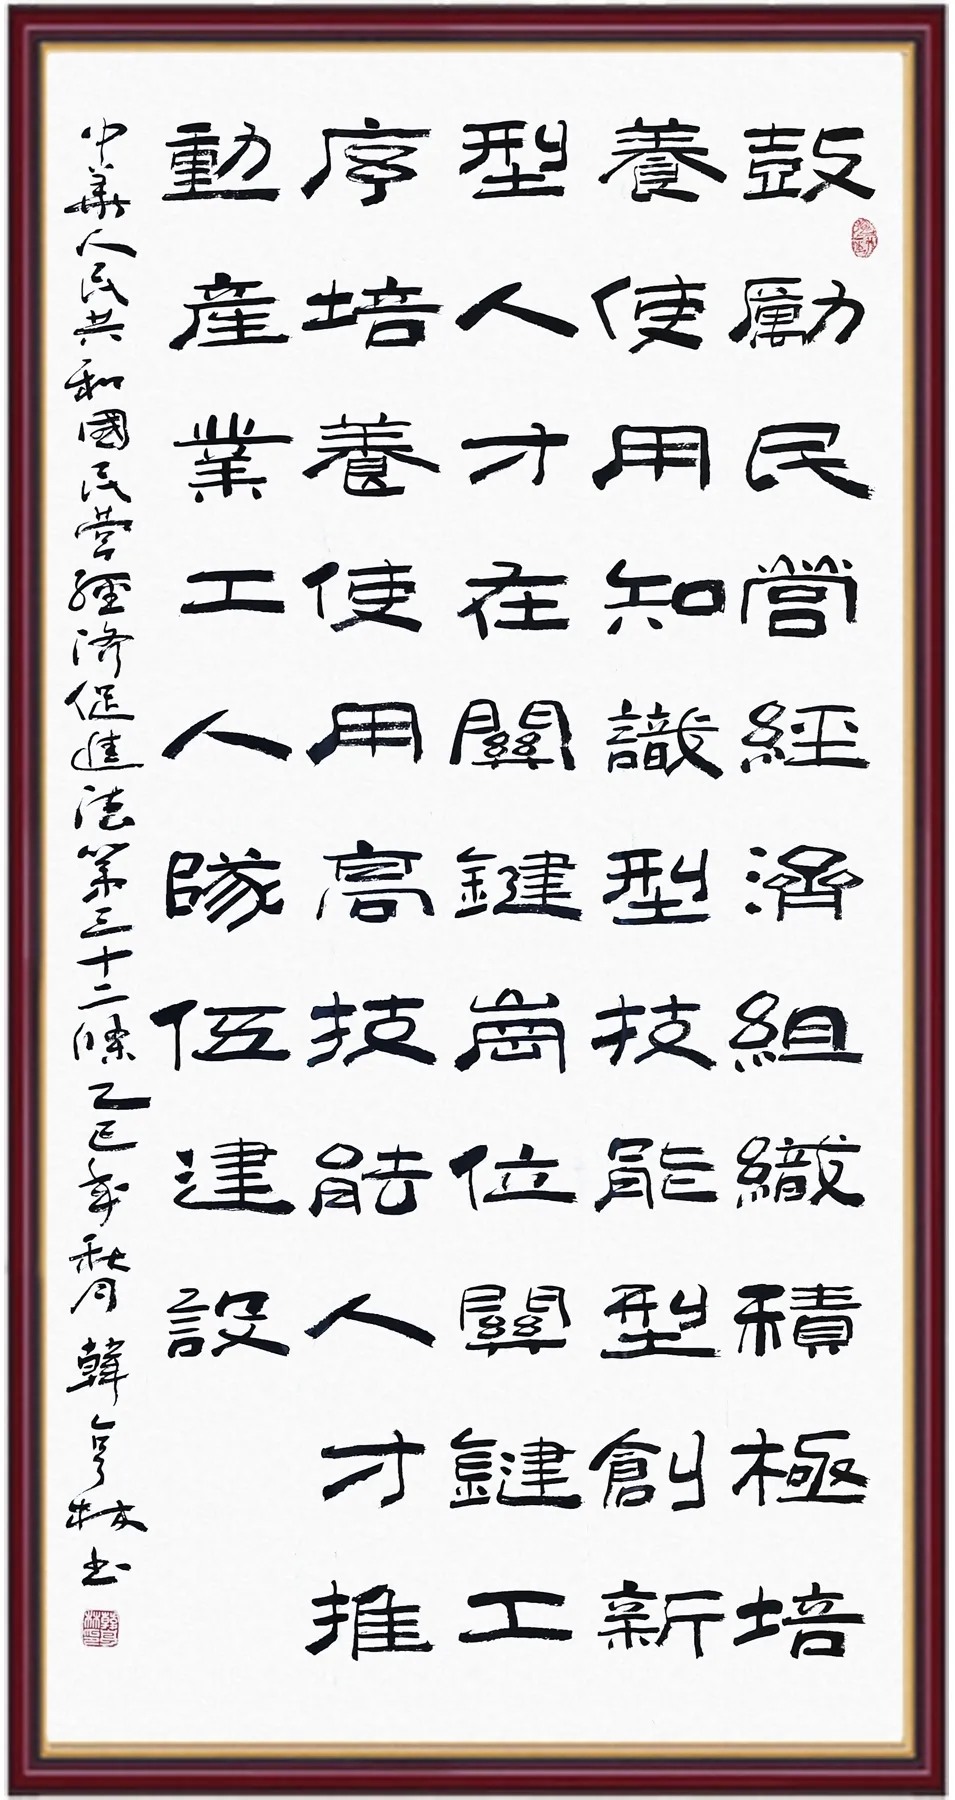 鼓勵民營經濟組織積極培
養使用知識型技能型創新
型人才在關鍵崗位關鍵工
序培養使用高技能人才推
動產業工人隊伍建設
中華人民共和國民營經濟促進法第三十二條乙巳年秋月韓亨林书